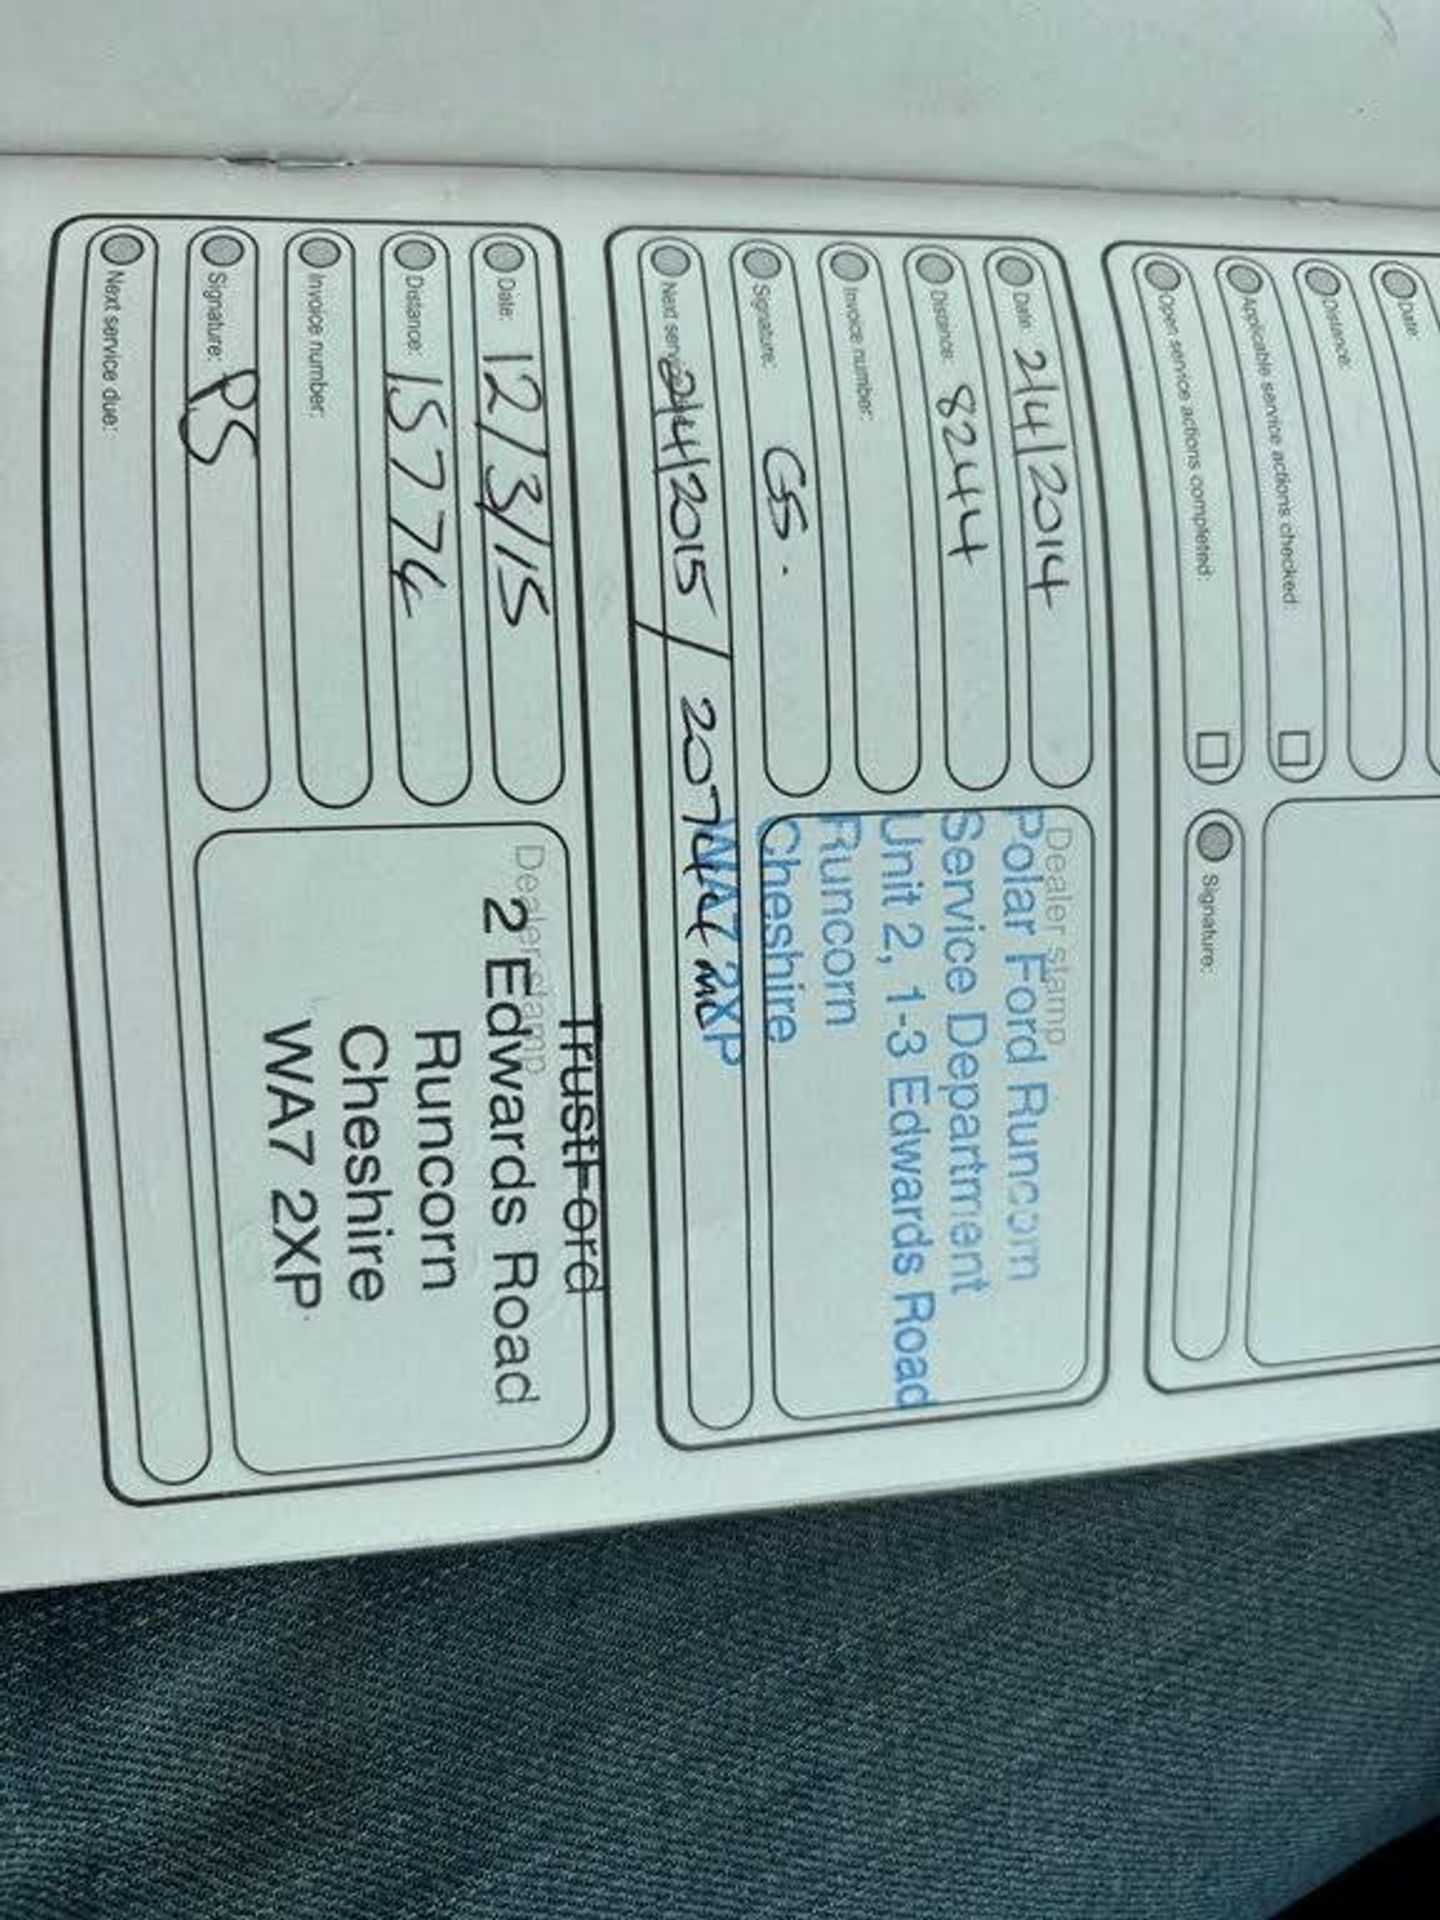 Date:
Distance:
Applicable service actions checked:
Open service actions completed:
Signature:
Date: 2/4/2014
Distance: 8244
Invoice number:
Signature: GS.
Next service 2/4/2015 / 20744 mls
Dealer stamp
Polar Ford Runcorn
Service Department
Unit 2, 1-3 Edwards Road
Runcorn
Cheshire
WA7 2XP
Date: 12/3/15
Distance: 15774
Invoice number:
Signature: PS
Next service due:
Dealer stamp
TrustFord
2 Edwards Road
Runcorn
Cheshire
WA7 2XP